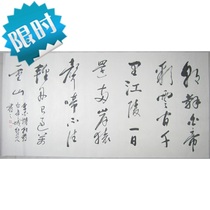 限时
朝辞白帝
彩雲间千
里江陵一日
還两岸猿
声啼不住
轻舟已过萬
重山